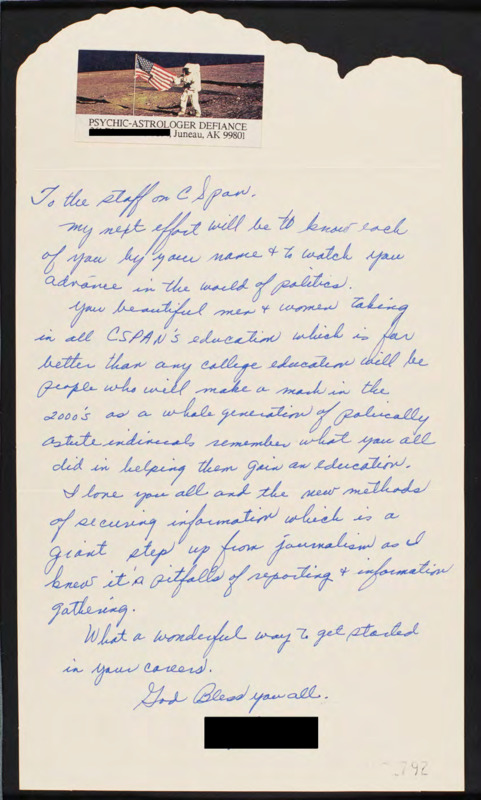 PSYCHIC-ASTROLOGER DEFIANCE
Juneau, AK 99801
To the staff on C Span.
My next effort will be to know each
of you by your name + to watch you
advance in the world of politics.
You beautiful men + women taking
in all CSPAN'S education which is far
better than any college education will be
people who will make a mark in the
2000's as a whole generation of polically
astute indivicals remember what you all
did in helping them gain an education.
I love you all and the new methods
of securing information which is a
giant step up from journalism as I
knew it's pitfalls of reporting + information
gathering.
What a wonderful way to get started
in your careers.
God Bless you all.
792